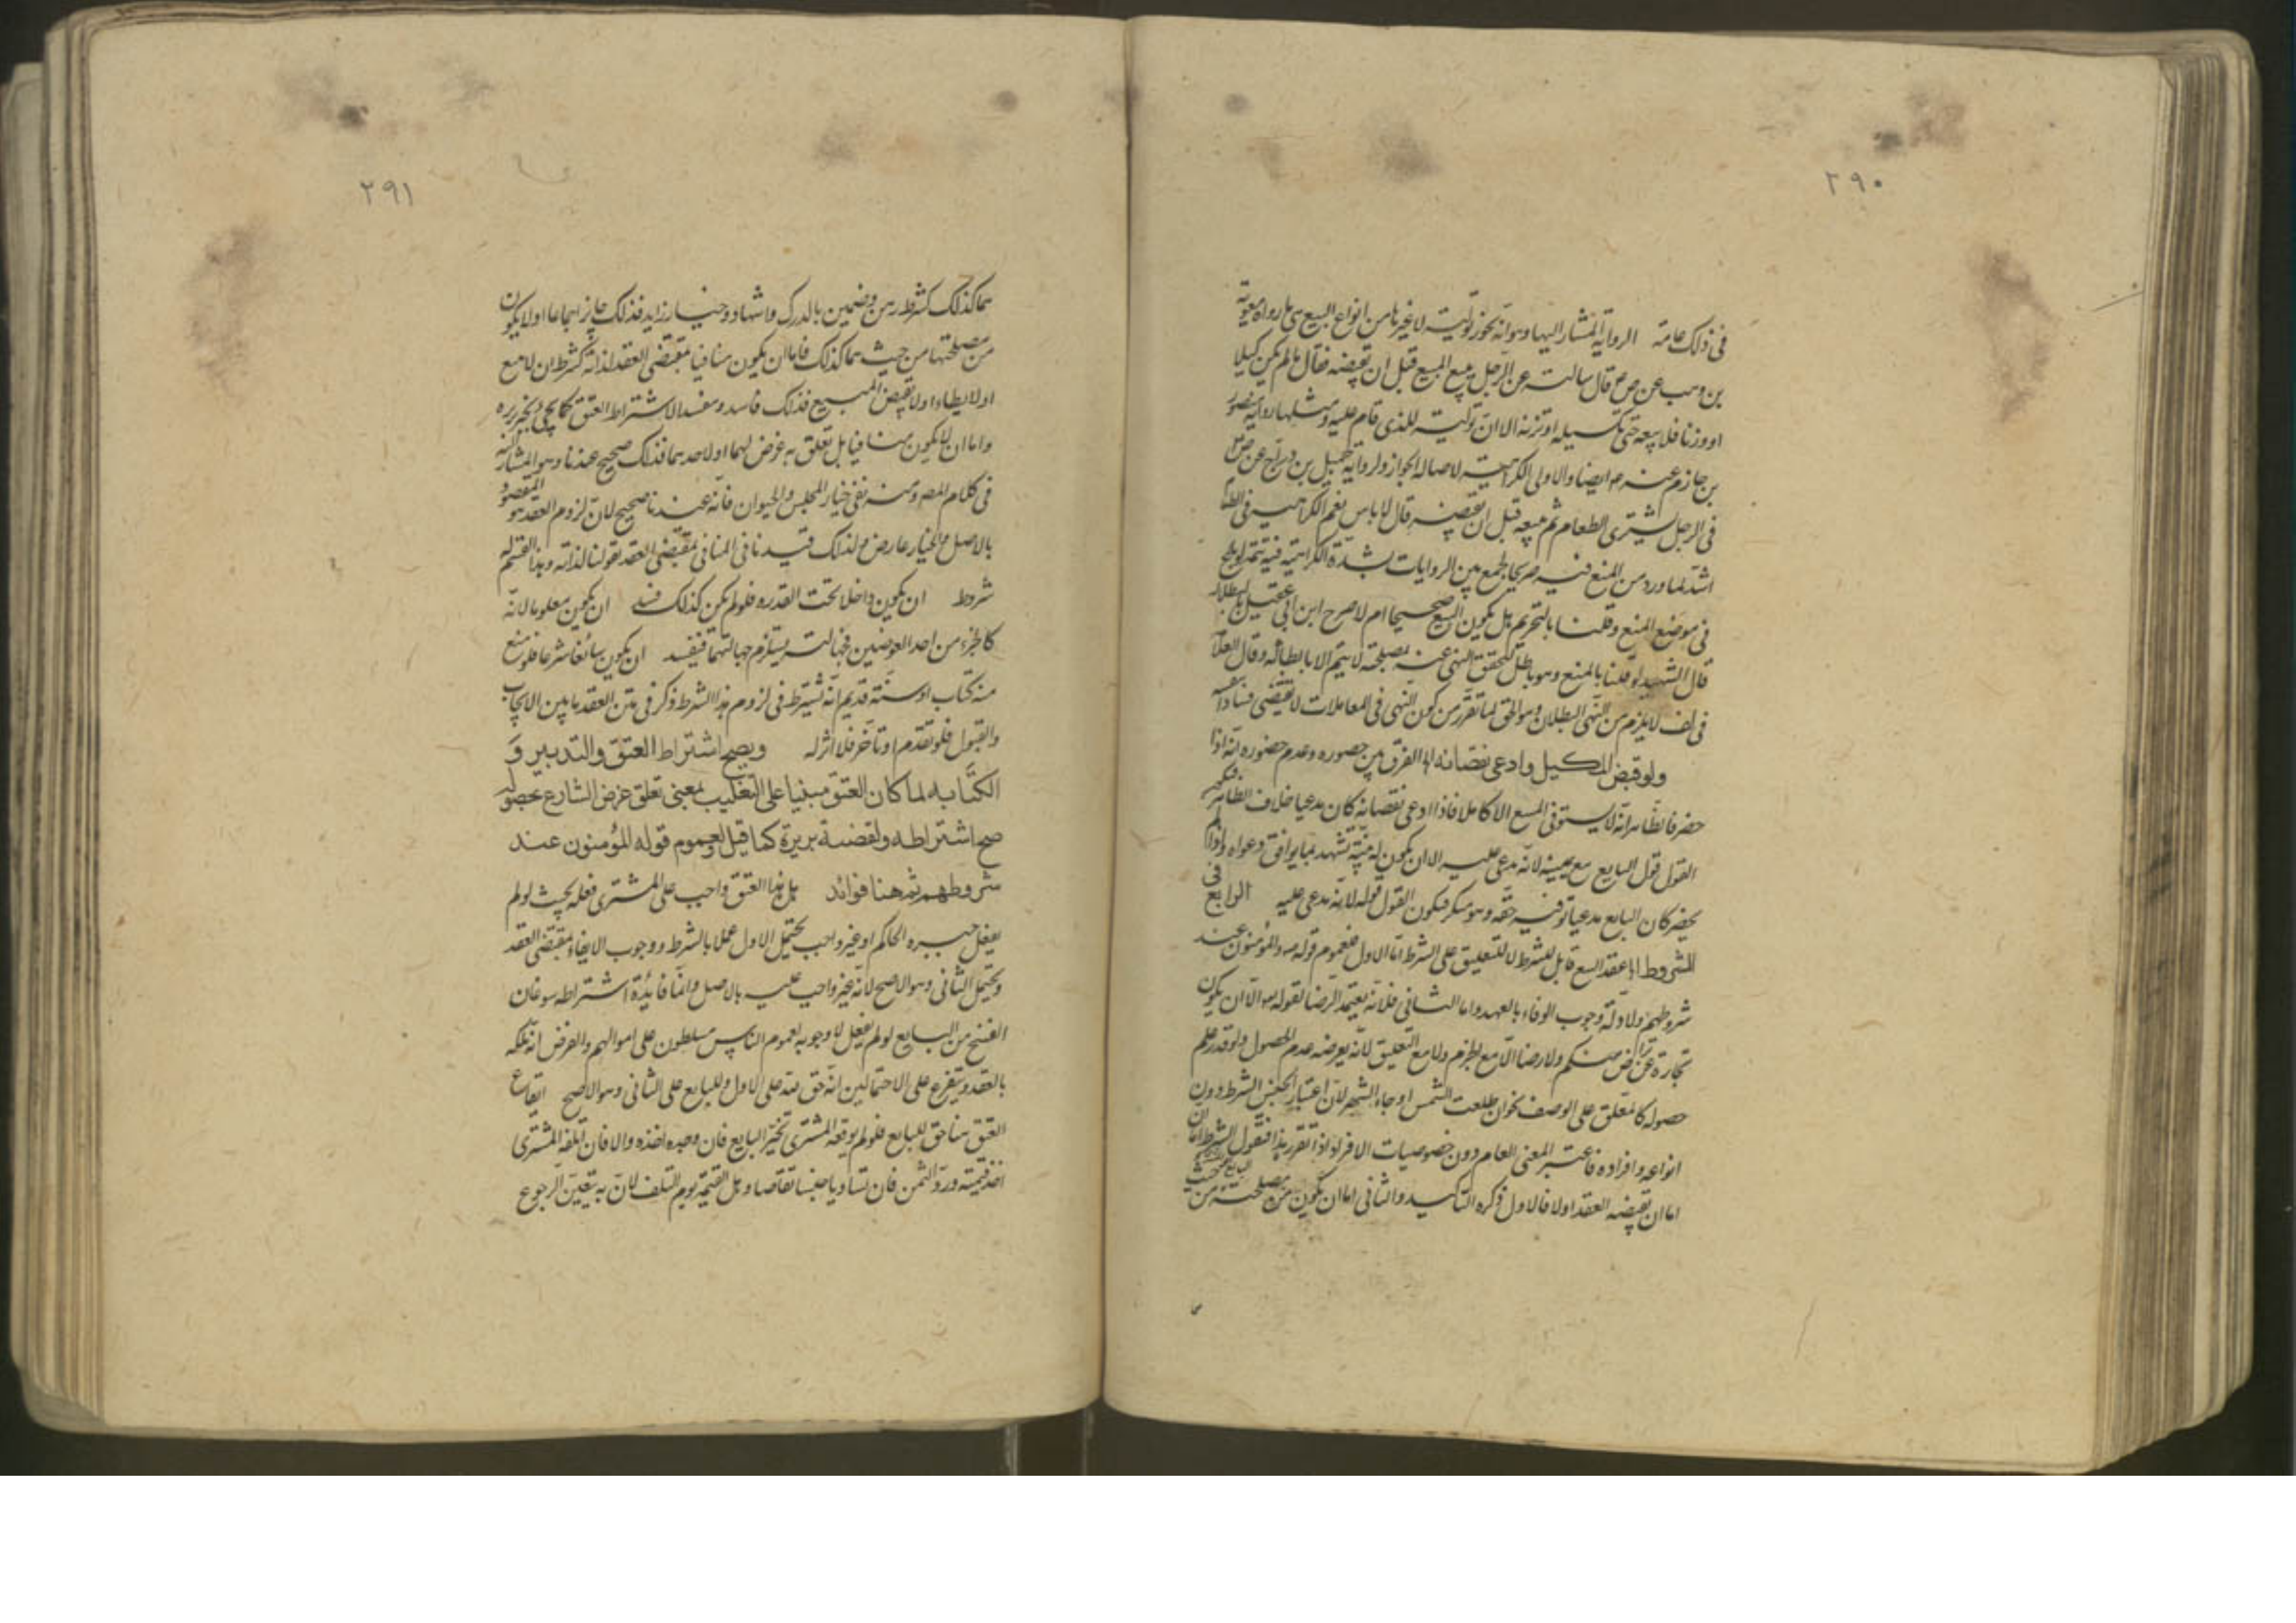 ٢٩٠
في ذلك عامة الرواية المشار اليها وهو انه يجوز تولية لا غيرها من انواع البيع هي ما رواه معوية
بن وهب عن ص قال سالته عن الرجل يبيع المبيع قبل ان يقبضه فقال ما لم يكن كيلا
او وزنا فلا يبيعه حتى تكيله او تزنه الا ان توليه للذي قام عليه ومثلها رواية منصور
بن حازم عنه ايضا والاولى الكراهية لاصالة الجواز ولرواية جميل بن دراج عن ص
في الرجل يشتري الطعام ثم يبيعه قبل ان يقبضه قال لا باس نعم الكراهية في الطعام
اشد لما ورد من المنع فيه صريحا والجمع بين الروايات بشدة الكراهية فيه تتمة لو بيع
في موضع المنع وقلنا بالتحريم هل يكون البيع صحيحا ام لا صرح ابن ابي عقيل بالبطلان
قال الشهيد لو قلنا بالمنع وهو باطل لتحقق النهي عنه لمصلحة لا يتم الا بابطاله وقال العلامة
في لف لا يلزم من النهي البطلان وهو الحق لما تقرر من كون النهي في المعاملات لا يقتضي فسادا
ولو قبض المكيل وادعى نقصانه الفرق بين حضوره وعدم حضوره انه اذا
حضر فالظاهر انه لا يستوفي المبيع الا كاملا فاذا ادعى نقصانه كان مدعيا خلاف الظاهر فيكون
القول قول البايع مع يمينه لانه مدعى عليه الا ان يكون له بينة تشهد بما يوافق دعواه واذا لم
يحضر كان البايع مدعيا توفيه حقه وهو منكر فيكون القول قوله لانه مدعى عليه الرابع في
الشروط اما عقد البيع قابل للشرط لا للتعليق على الشرط اما الاول فعموم قوله المؤمنون عند
شروطهم ولادلة وجوب الوفاء بالعهد واما الثاني فلانه يعتمد الرضا لقوله الا ان يكون
تجارة عن تراض منكم ولا رضا الا مع الجزم ولا مع التعليق لانه بعرضة عدم الحصول ولو قدر علم
حصوله كالمعلق على الوصف نحو ان طلعت الشمس او جاء الشهر لان اعتبار الجنس الشرط دون
انواعه وافراده فاعتبر المعنى العام دون خصوصيات الافراد اذا تقرر هذا فنقول الشرط اما ان
اما ان يقتضيه العقد او لا فالاول ذكره التاكيد والثاني اما ان يكون من مصلحته من
٢٩١
هما كذلك كشرط رهن وضمين بالدرك واشهاد وخيار زايد فذلك جايز اجماعا او لا يكون
من مصلحتها من حيث هما كذلك فاما ان يكون منافيا مقتضى العقد لذاته كشرط ان لا يبيع
او لا يطاء او لا يقبض المبيع فذلك فاسد ومفسد الا اشتراط العتق كما يجئ تحريره
واما ان لا يكون منافيا بل تعلق به غرض لهما او لاحدهما فذلك صحيح عندنا وهو المشار اليه
في كلام المصر ومنه نفي خيار المجلس والحيوان فانه عندنا صحيح لان لزوم العقد هو المقصود
بالاصل والخيار عارض ولذلك قيدنا في المنافي مقتضى العقد بقولنا لذاته وهذا القسم له
شروط ان يكون داخلا تحت القدرة فلو لم يكن كذلك فسد ان يكون معلوما لانه
كالجزء من احد العوضين فجهالته يستلزم جهالتهما فيفسد ان يكون سائغا شرعا فلو منع
منه كتاب او سنة قديم انه يشترط في لزوم هذا الشرط ذكر في متن العقد ما بين الايجاب
والقبول فلو تقدم او تأخر فلا اثر له ويصح اشتراط العتق والتدبير و
الكتابه لما كان العتق مبنيا على التغليب بمعنى تعلق غرض الشارع بحصوله
صح اشتراطه ولقضية بريرة كما قيل ولعموم قوله المؤمنون عند
شروطهم ثم هنا فوائد هل هذا العتق واجب على المشتري فعله بحيث لو لم
يفعل جبره الحاكم او غير واجب يحتمل الاول عملا بالشرط ووجوب الايفاء مقتضى العقد
ويحتمل الثاني وهو الاصح لانه غير واجب عليه بالاصل وانما فايدة اشتراطه سوغان
الفسخ من البايع لو لم يفعل لا وجوبه لعموم الناس مسلطون على اموالهم والفرض انه تملكه
بالعقد ويتفرع على الاحتمالين انه حق لله على الاول وللبايع على الثاني وهو الاصح ايقاع
العتق هنا حق للبايع فلو لم يوقعه المشتري تخير البايع فان وجده اخذه والا فان اتلفه المشتري
اخذ قيمته ورد الثمن فان تساويا جنسا تقاصا وهل القيمة يوم التلف لان به يتعين الرجوع